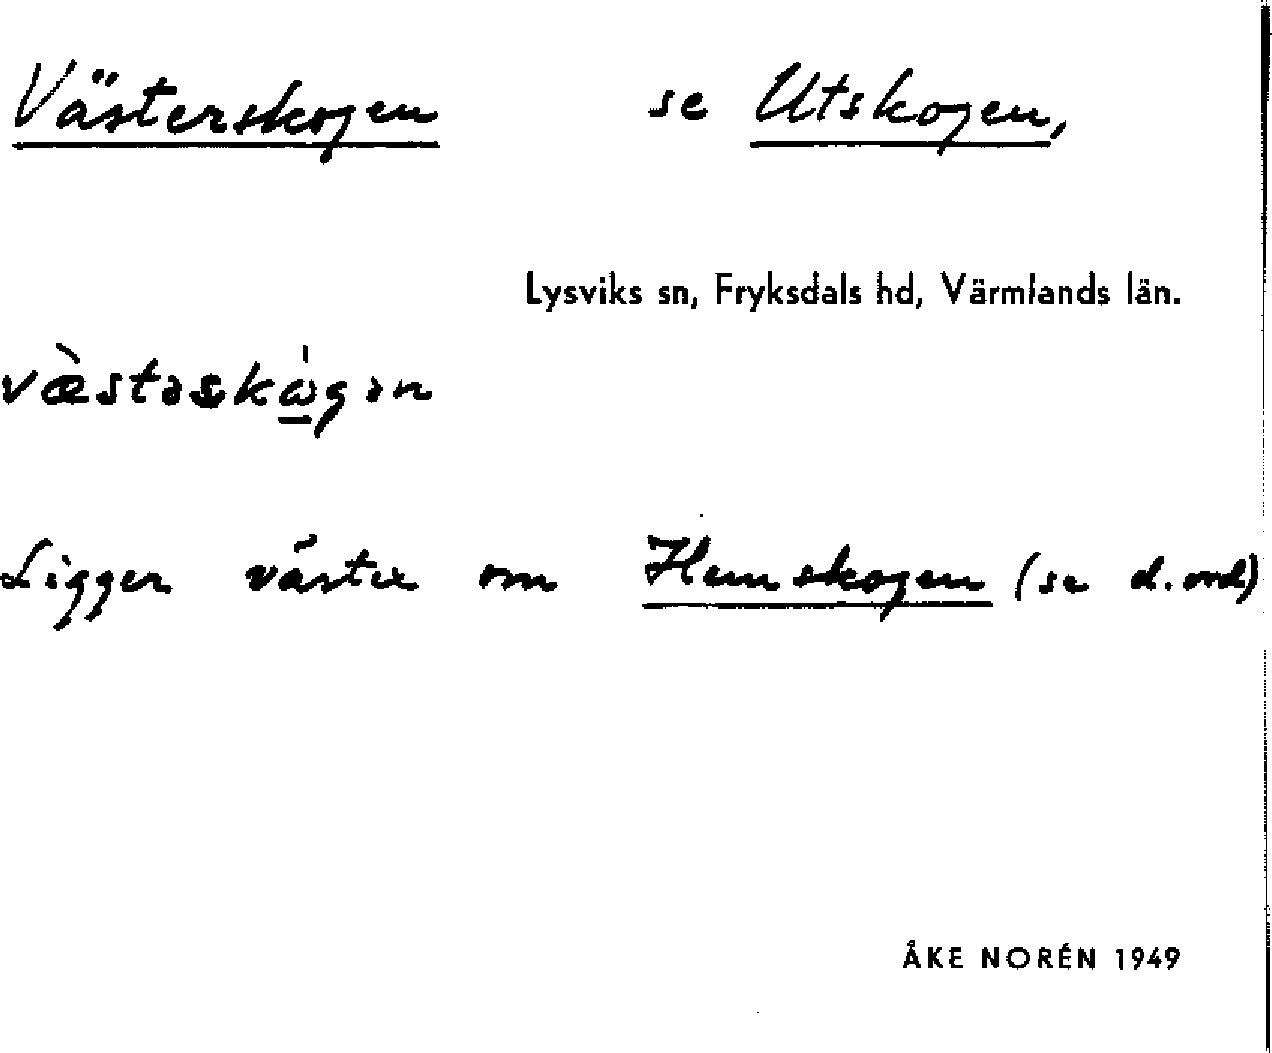 Västerskogen se Utskogen,
Lysviks sn, Fryksdals hd, Värmlands län.
væ̀stəskὼgən
Ligger väster om Hemskogen (se d. ord)
ÅKE NORÉN 1949